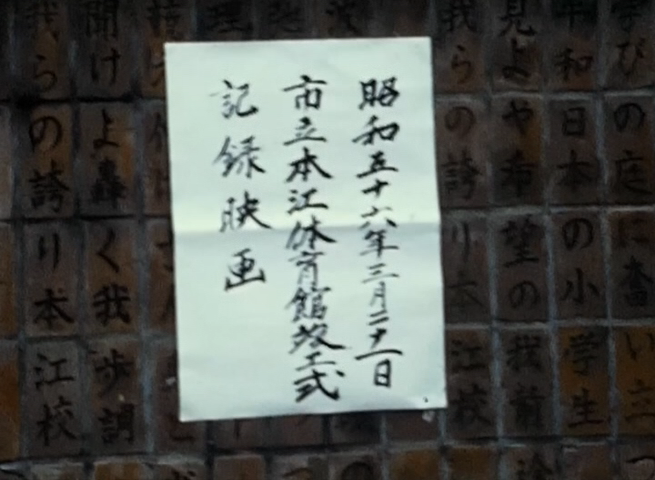 学びの庭に奮い立つ
平和日本の小学生
見よや希望の我前途
我らの誇り本江校
昭和五十六年三月二十一日
市立本江体育館竣工式
記録映画
聞けよ轟く我歩調
我らの誇り本江校